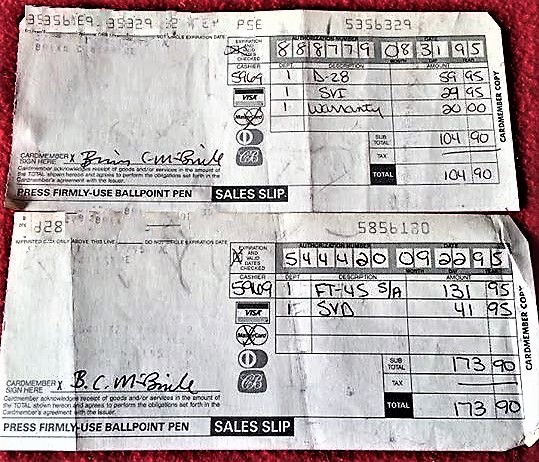 PSE 5356329
EXPIRATION AND VALID DATES CHECKED
AUTHORIZATION NUMBER DATE
888779 08 31 95
MONTH DAY YEAR
CASHIER DEPT DESCRIPTION AMOUNT
5969 1 D-28 59 95
VISA 1 SVI 29 95
MasterCard 1 Warranty 20 00
SUB TOTAL 104 90
TAX
TOTAL 104 90
CARDMEMBER SIGN HERE X Brian C McBride
Cardmember acknowledges receipt of goods and/or services in the amount of the TOTAL shown hereon and agrees to perform the obligations set forth in the Cardmember's agreement with the Issuer.
PRESS FIRMLY-USE BALLPOINT PEN SALES SLIP
CARDMEMBER COPY
5856180
IMPRINTED COPY ONLY ABOVE THIS LINE DO NOT CIRCLE EXPIRATION DATE
EXPIRATION AND VALID DATES CHECKED
AUTHORIZATION NUMBER DATE
544420 09 22 95
MONTH DAY YEAR
CASHIER DEPT DESCRIPTION AMOUNT
5969 1 FT-45 S/A 131 95
VISA 1 SVD 41 95
MasterCard
SUB TOTAL 173 90
TAX
TOTAL 173 90
CARDMEMBER SIGN HERE X B.C. McBride
Cardmember acknowledges receipt of goods and/or services in the amount of the TOTAL shown hereon and agrees to perform the obligations set forth in the Cardmember's agreement with the Issuer.
PRESS FIRMLY-USE BALLPOINT PEN SALES SLIP
CARDMEMBER COPY